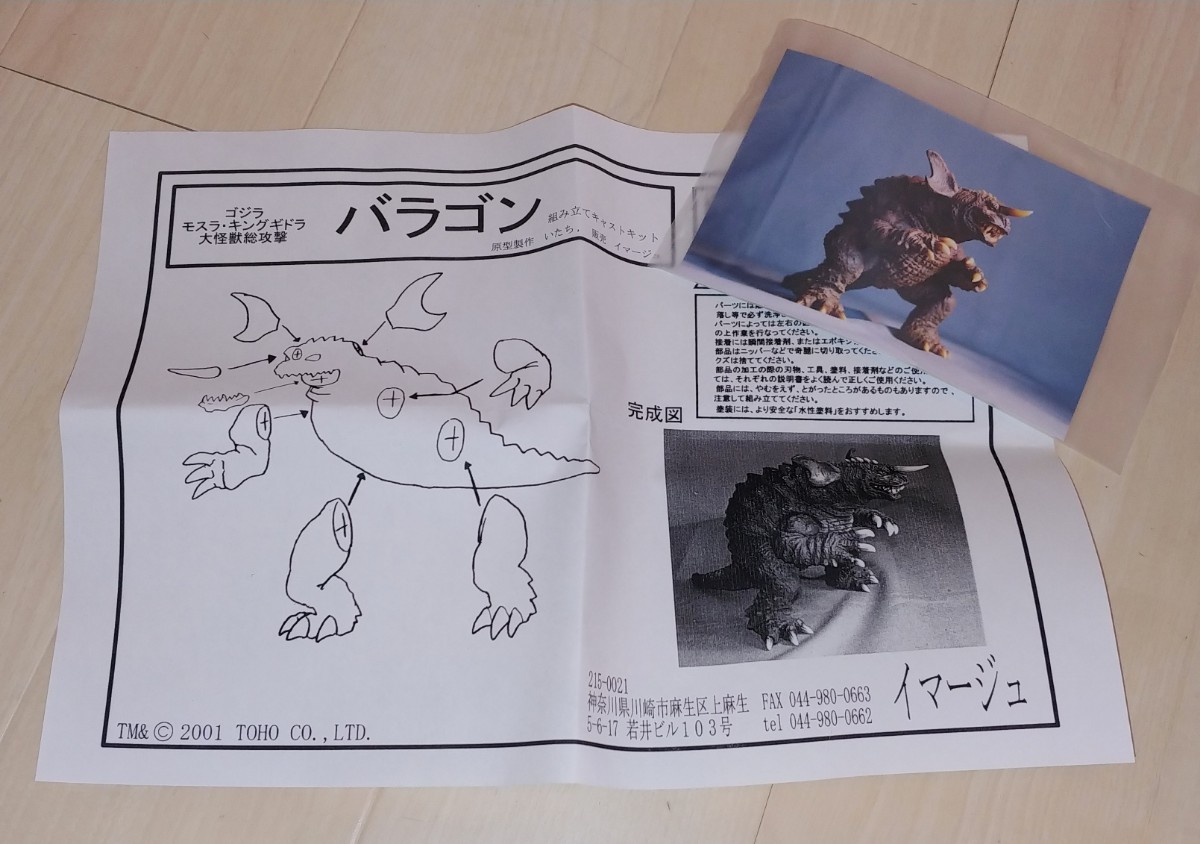 ゴジラ
モスラ・キングギドラ
大怪獣総攻撃
バラゴン
組み立てキャストキット
原型製作 いたち. 販売 イマージュ
パーツには
落し等で必ず洗浄
パーツによっては左右の
の上作業を行なってください。
接着には瞬間接着剤、またはエポキシ
部品はニッパーなどで奇麗に切り取ってくださ
クズは捨ててください。
部品の加工の際の刃物、工具、塗料、接着剤などのご使用
ては、それぞれの説明書をよく読んで正しくご使用ください。
部品には、やむをえず、とがったところがあるものもありますので、
注意して組み立ててください。
塗装には、より安全な「水性塗料」をおすすめします。
完成図
215-0021
神奈川県川崎市麻生区上麻生
5-6-17 若井ビル103号
FAX 044-980-0663
tel 044-980-0662
イマージュ
TM&© 2001 TOHO CO.,LTD.